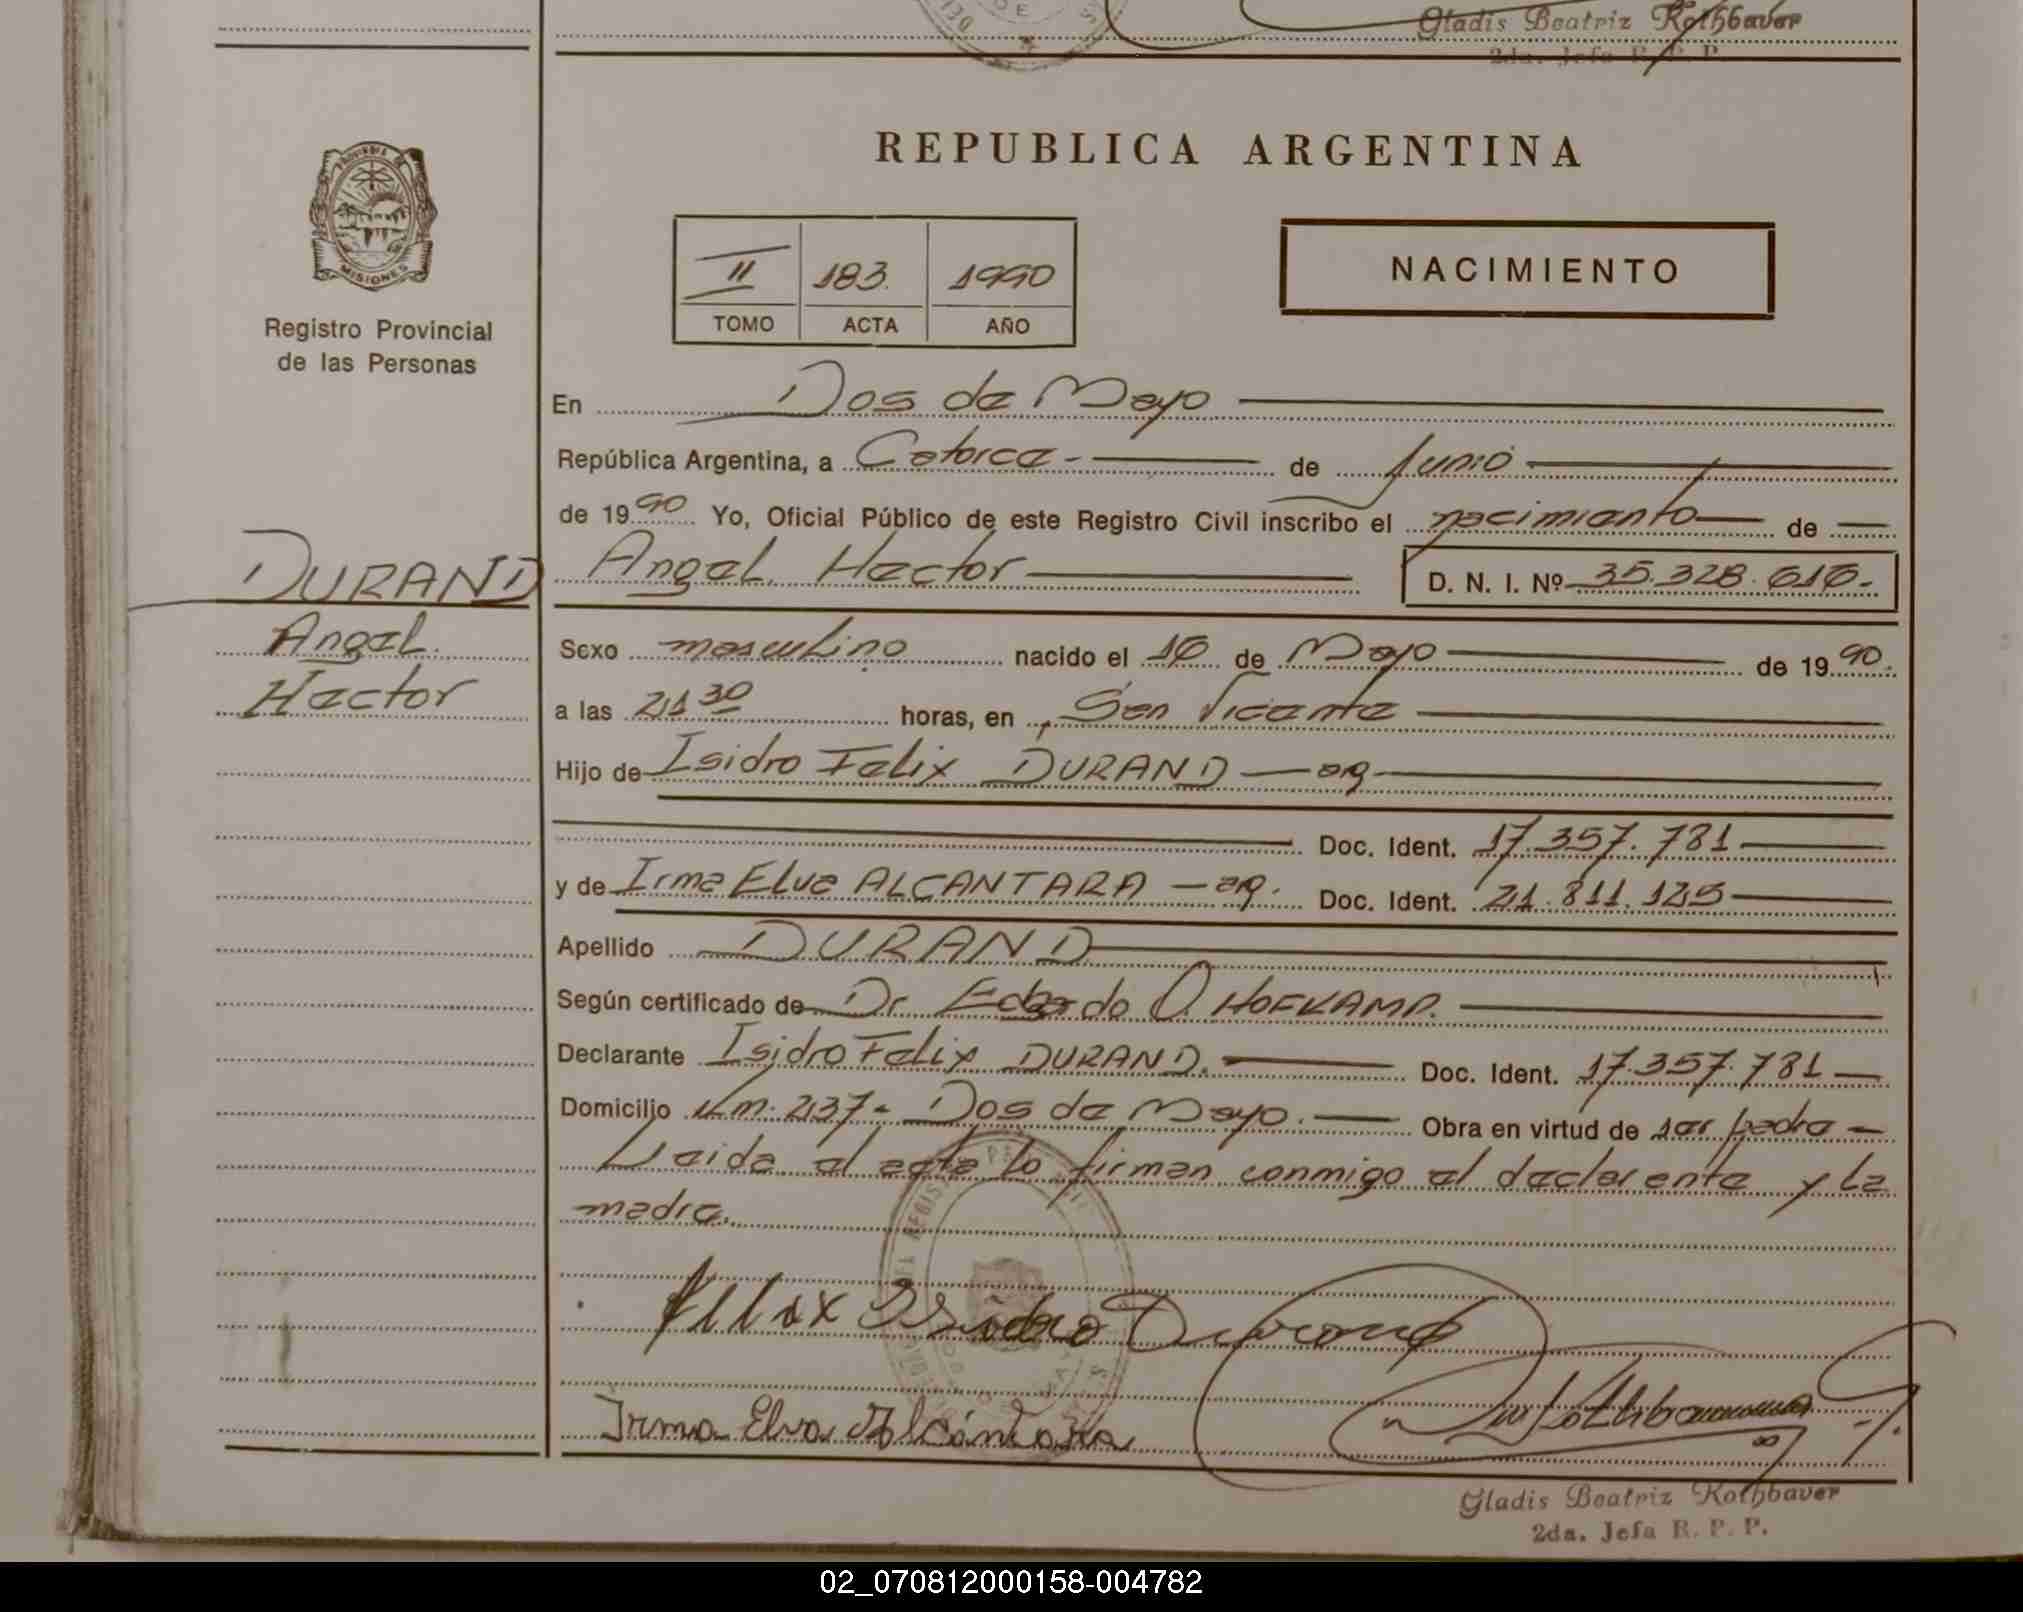 Gladis Beatriz Rothbaver
2da. Jefa R. P. P.
REPUBLICA ARGENTINA
PROVINCIA DE
MISIONES
Registro Provincial
de las Personas
II 183. 1990
TOMO ACTA AÑO
NACIMIENTO
En Dos de Mayo
República Argentina, a Catorce - de Junio
de 1990 Yo, Oficial Público de este Registro Civil inscribo el nacimiento de
DURAND
Angel
Hector
Angel Hector D. N. I. Nº 35.328.616-
Sexo masculino nacido el 16 de Mayo de 1990.
a las 21 30 horas, en San Vicente
Hijo de Isidro Felix DURAND - arg
Doc. Ident. 17.357.781
y de Irma Elva ALCANTARA - arg. Doc. Ident. 21.811.125
Apellido DURAND
Según certificado de Dr. O. HOFKAMP.
Declarante Isidro Felix DURAND. Doc. Ident. 17.357.781
Domicilio Km. 237- Dos de Mayo. Obra en virtud de ser padre -
Leida el acta lo firman conmigo el declarante y la
madre.
Felix Isidro Durand
Irma Elva Alcántara
Gladis Beatriz Rothbaver
2da. Jefa R. P. P.
02_070812000158-004782